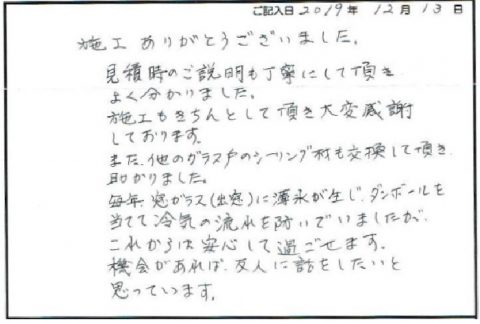 ご記入日 2019年 12月 13日
施工ありがとうございました。
見積時のご説明も丁寧にして頂き
よく分かりました。
施工もきちんとして頂き大変感謝
しております。
また、他のガラス戸のシーリング材も交換して頂き
助かりました。
毎年、窓ガラス(出窓)に薄氷が生じ、ダンボールを
当てて冷気の流れを防いでいましたが、
これからは安心して過ごせます。
機会があれば、友人に話をしたいと
思っています。